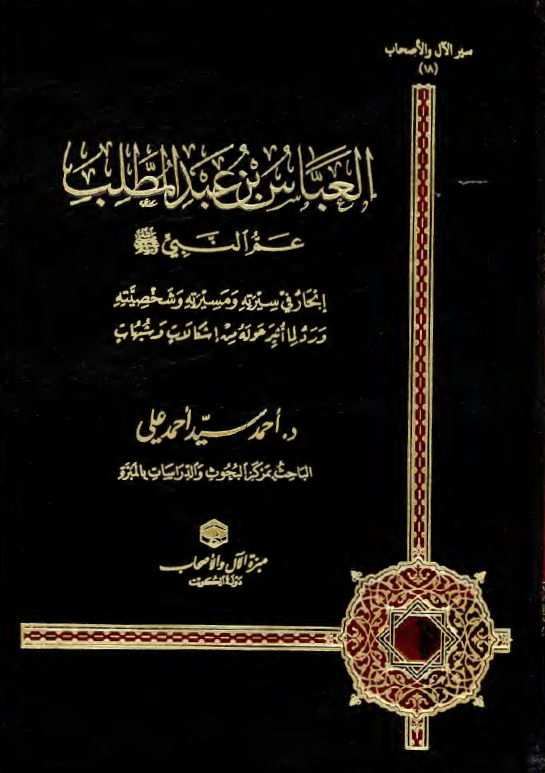 سير الآل والأصحاب
(١٨)
العَبَّاسُ بْنُ عَبْدِ المُطَّلِبِ
عَمُّ النَّبِيِّ ﷺ
إبْحَارٌ فِي سِيْرَتِهِ وَمَسِيْرَتِهِ وَشَخْصِيَّتِهِ
وَرَدٌّ لِمَا أُثِيْرَ حَوْلَهُ مِنْ إشْكَالَاتٍ وَشُبُهَاتٍ
د. أحمد سيّد أحمد علي
البَاحِثُ بِمَرْكَزِ البُحُوثِ وَالدِّرَاسَاتِ بِالمَبَرَّةِ
مبرّة الآل والأصحاب
دَوْلَةُ الكُوَيْت